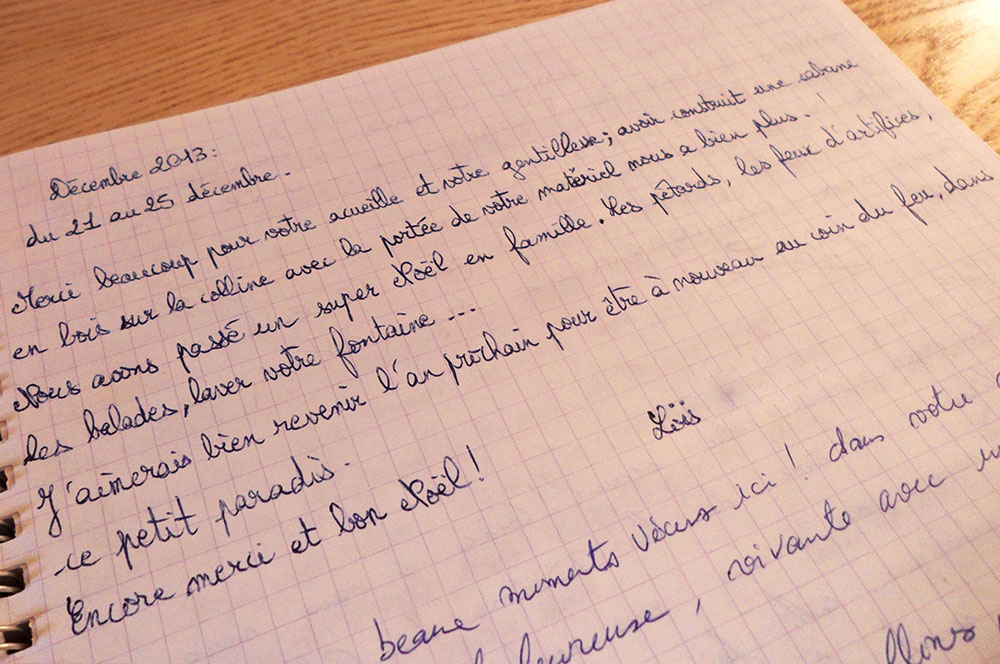 Décembre 2013:
du 21 au 25 décembre.
Merci beaucoup pour votre acueille et votre gentillesse; avoir construit une cabane
en bois sur la colline avec la portée de votre matériel nous a bien plus!
Nous avons passé un super Noël en famille. Les pétards, les feux d'artifices,
des balades, laver votre fontaine...
J'aimerais bien revenir l'an prochain pour être à nouveau au coin du feu, dans
ce petit paradis.
Encore merci et bon Noël!
beaux moments vécus ici! dans votre
vivante avec